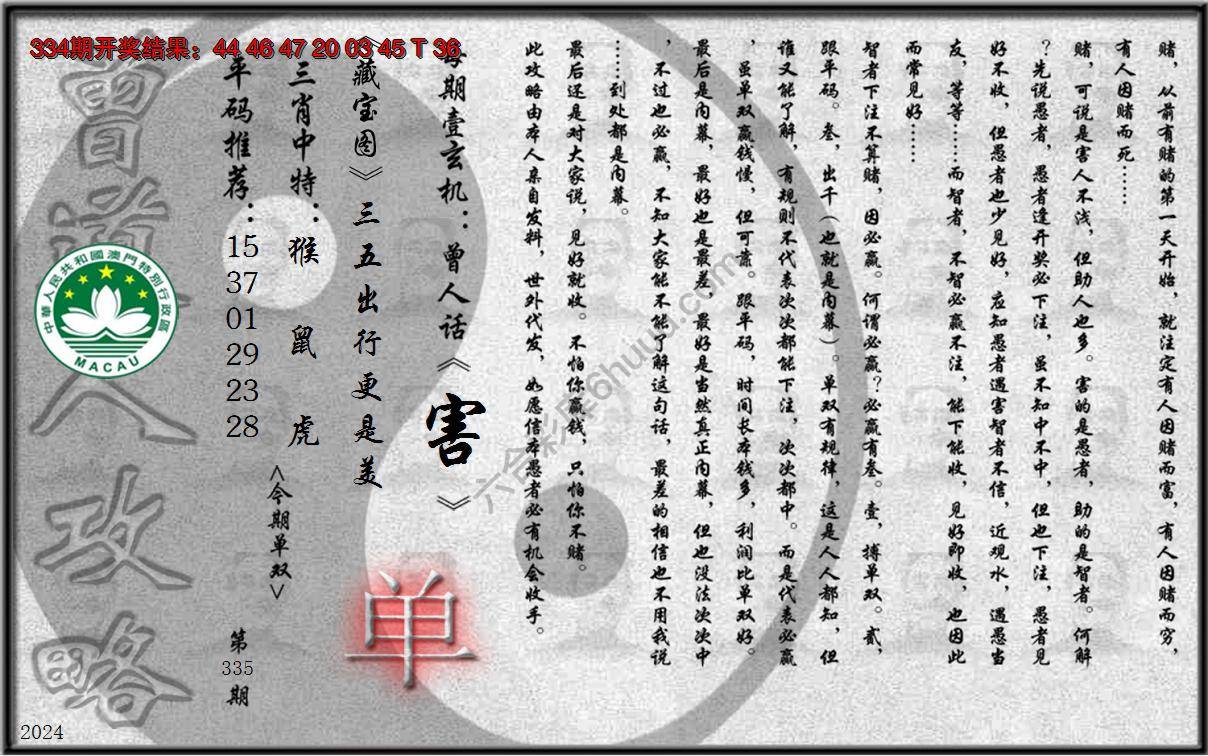 334期开奖结果：44 46 47 20 03 45 T 36
赌，从前有赌的第一天开始，就注定有人因赌而富，有人因赌而穷，
有人因赌而死……
赌，可说是害人不浅，但助人也多。害的是愚者，助的是智者。何解
？先说愚者，愚者逢开奖必下注，虽不知中不中，但也下注，愚者见
好不收，但愚者也少见好，应知愚者遇害智者不信，近观水，遇愚当
友，等等……而智者，不智必赢不注，能下能收，见好即收，也因此
而常见好……
智者下注不算赌，因必赢。何谓必赢？必赢有叁。壹，搏单双。贰，
跟平码。叁，出千（也就是内幕）。单双有规律，这是人人都知，但
谁又能了解，有规则不代表次次都能下注，次次都中。而是代表必赢
，虽单双赢钱慢，但可靠。跟平码，时间长本钱多，利润比单双好。
最后是内幕，最好也是最差，最好是当然真正内幕，但也没法次次中
，不过也必赢，不知大家能不能了解这句话，最差的相信也不用我说
……到处都是内幕。
最后还是对大家说，见好就收。不怕你赢钱，只怕你不赌。
此攻略由本人亲自发料，世外代发，如愿信本愚者必有机会收手。
每期壹玄机：曾人话《害》
《藏宝图》三五出行更是美
三肖中特：猴 鼠 虎
<今期单双>
单
平码推荐：15 37 01 29 23 28
第335期
曾道人攻略
中華人民共和國澳門特別行政區
MACAU
六合彩库6huuu.com
2024